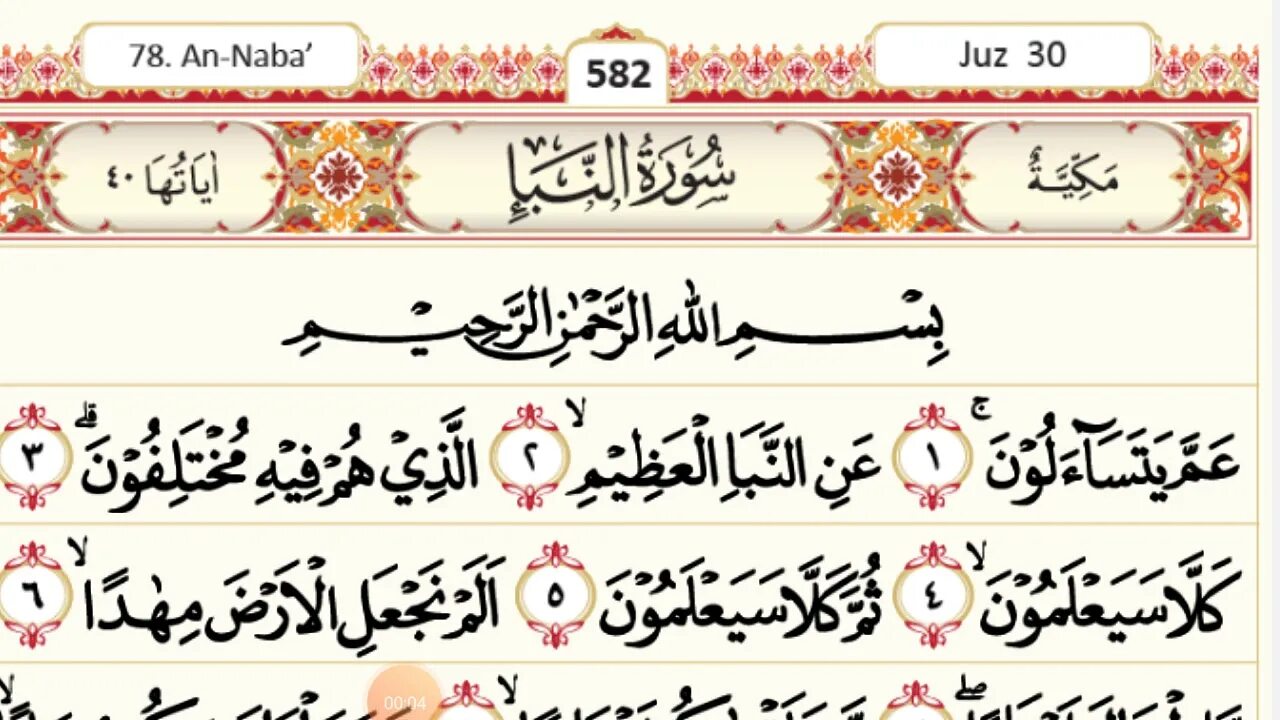 78. An-Naba’ 582 Juz 30
مَكِّيَّةٌ سُورَةُ النَّبَإِ اٰيَاتُهَا ٤٠
بِسْمِ اللّٰهِ الرَّحْمٰنِ الرَّحِيْمِ
عَمَّ يَتَسَاۤءَلُوْنَۚ ١ عَنِ النَّبَاِ الْعَظِيْمِۙ ٢ الَّذِيْ هُمْ فِيْهِ مُخْتَلِفُوْنَۗ ٣
كَلَّا سَيَعْلَمُوْنَۙ ٤ ثُمَّ كَلَّا سَيَعْلَمُوْنَ ٥ اَلَمْ نَجْعَلِ الْاَرْضَ مِهٰدًاۙ ٦
00:04